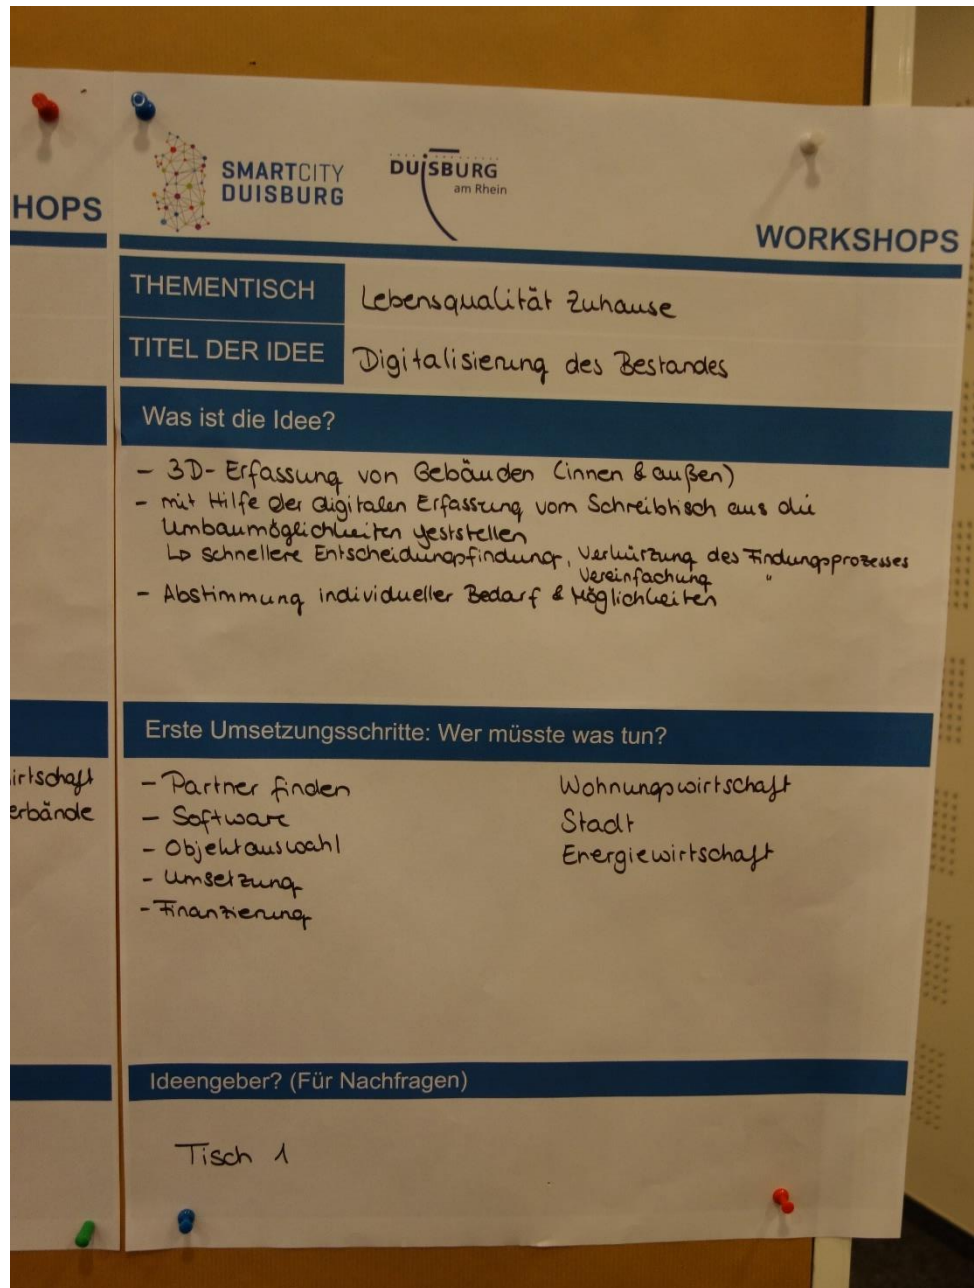 HOPS
irtschaft
erbände
SMARTCITY
DUISBURG
DUISBURG
am Rhein
WORKSHOPS
THEMENTISCH Lebensqualität Zuhause
TITEL DER IDEE Digitalisierung des Bestandes
Was ist die Idee?
- 3D-Erfassung von Gebäuden (innen & außen)
- mit Hilfe der digitalen Erfassung vom Schreibtisch aus die
Umbaumöglichkeiten feststellen
↳ schnellere Entscheidungsfindung, Verkürzung des Findungsprozesses
Vereinfachung "
- Abstimmung individueller Bedarf & Möglichkeiten
Erste Umsetzungsschritte: Wer müsste was tun?
- Partner finden
- Software
- Objektauswahl
- Umsetzung
- Finanzierung
Wohnungswirtschaft
Stadt
Energiewirtschaft
Ideengeber? (Für Nachfragen)
Tisch 1